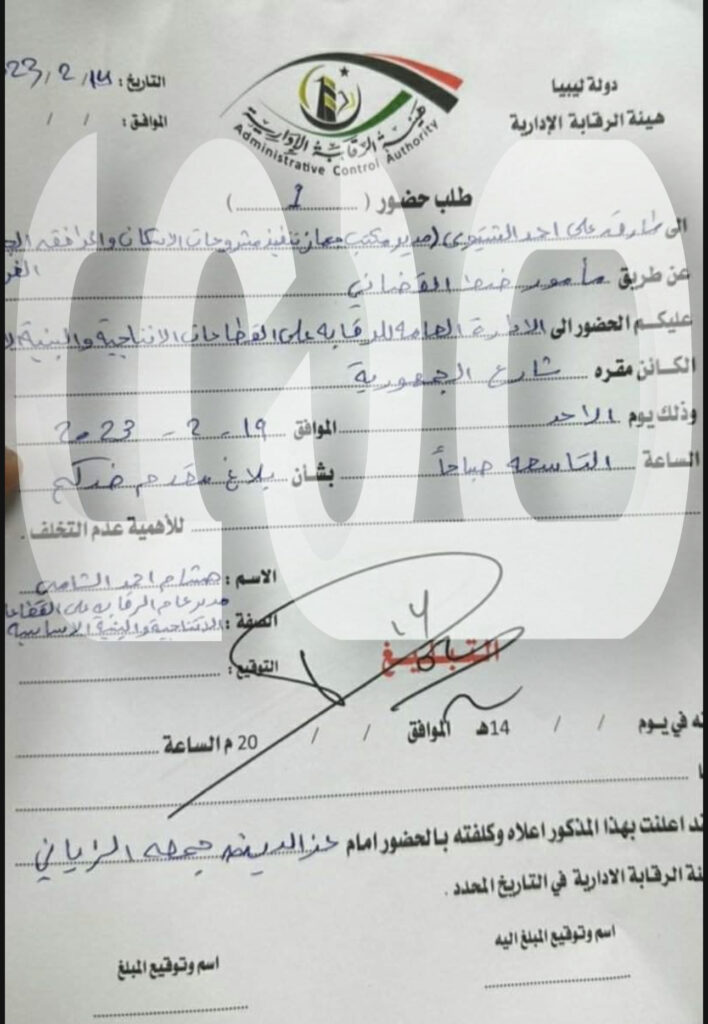 دولة ليبيا
هيئة الرقابة الإدارية
هيئة الرقابة الإدارية
Administrative Control Authority
التاريخ : 23/2/14
الموافق : / /
طلب حضور ( 1 )
الى طارق على احمد (مدير مكتب جهاز تنفيذ مشروعات الاسكان والمرافق
عن طريق مأمور ضبط القضائي
عليكم الحضور الى الادارة العامة للرقابة على القطاعات الانتاجية والبنية
الكائن مقره شارع الجمهورية
وذلك يوم الاحد الموافق 19-2-2023
الساعة التاسعة صباحاً بشأن بلاغ مقدم ضدكم
للأهمية عدم التخلف .
الاسم : هشام احمد الشامي
الصفة : مدير عام الرقابة على القطاعات
الانتاجية والبنية الاساسية
التوقيع :
التبليغ
في يوم / / 14هـ الموافق / / 20 م الساعة
اعلنت بهذا المذكور اعلاه وكلفته بالحضور امام عز الدين جمعه الزياني
الرقابة الادارية في التاريخ المحدد .
اسم وتوقيع المبلغ اليه
اسم وتوقيع المبلغ